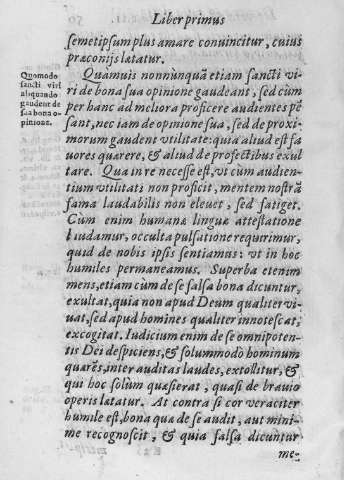 Liber primus
semetipsum plus amare convincitur, cuius
præconijs lætatur.
Quomodo
sancti viri
aliquando
gaudent de
sua bona o-
pinione.
Quamuis nonnunquã etiam sancti vi-
ri de bona sua opinione gaudeant, sed cùm
per hanc ad meliora proficere audientes pẽ
sant, nec iam de opinione sua, sed de proxi-
morum gaudent vtilitate: quia aliud est fa
uores quærere, & aliud de profectibus exul
tare. Qua in re necesse est, vt cùm audien-
tium vtilitati non proficit, mentem nostrã
fama laudabilis non eleuet, sed fatiget.
Cùm enim humanæ linguæ attestatione
laudamur, occulta pulsatione requirimur,
quid de nobis ipsi sentiamus: vt in hoc
humiles permaneamus. Superba etenim
mens, etiam cùm de se falsa bona dicuntur,
exultat, quia non apud Deum qualiter vi-
uat, sed apud homines qualiter innotescat,
excogitat. Iudicium enim de se omnipoten-
tis Dei despiciens, & solummodo hominum
quærẽs, inter auditas laudes, extollitur, &
qui hoc solùm quæsierat, quasi de brauio
operis lætatur. At contra si cor veraciter
humile est, bona quæ de se audit, aut mini-
me recognoscit, & quia falsa dicuntur
me-